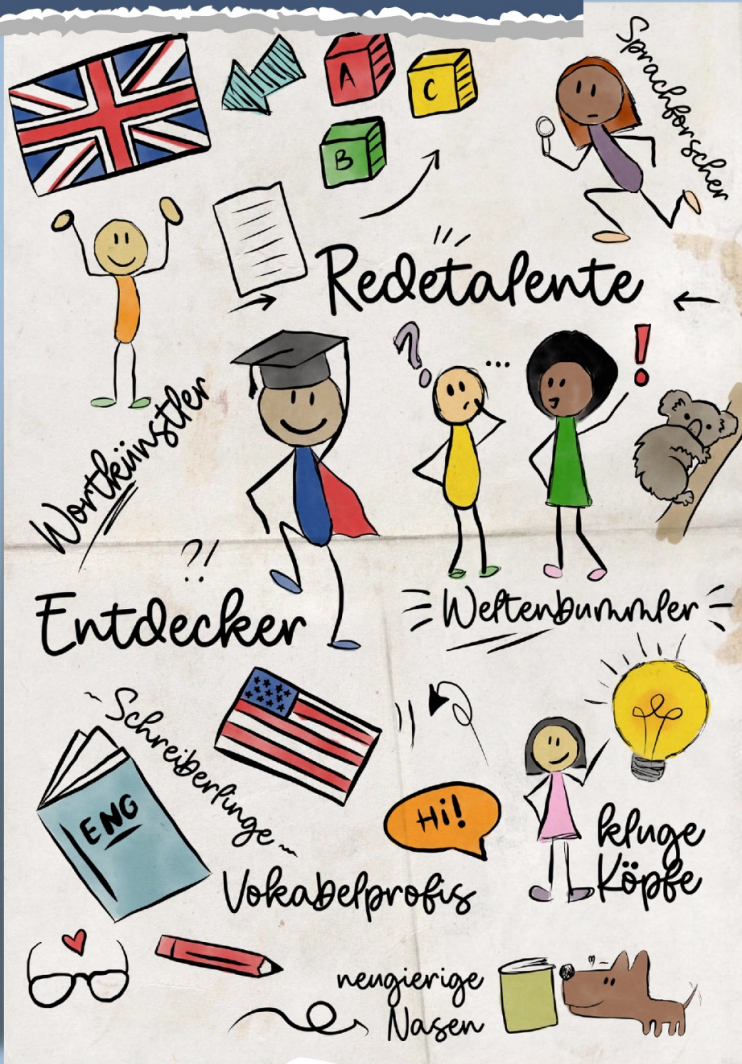 A
C
B
Sprachforscher
Redetalente
?
...
!
Wortkünstler
?!
Entdecker
Weltenbummler
Schreiberlinge
ENG
Hi!
kluge
Köpfe
Vokabelprofis
neugierige
Nasen